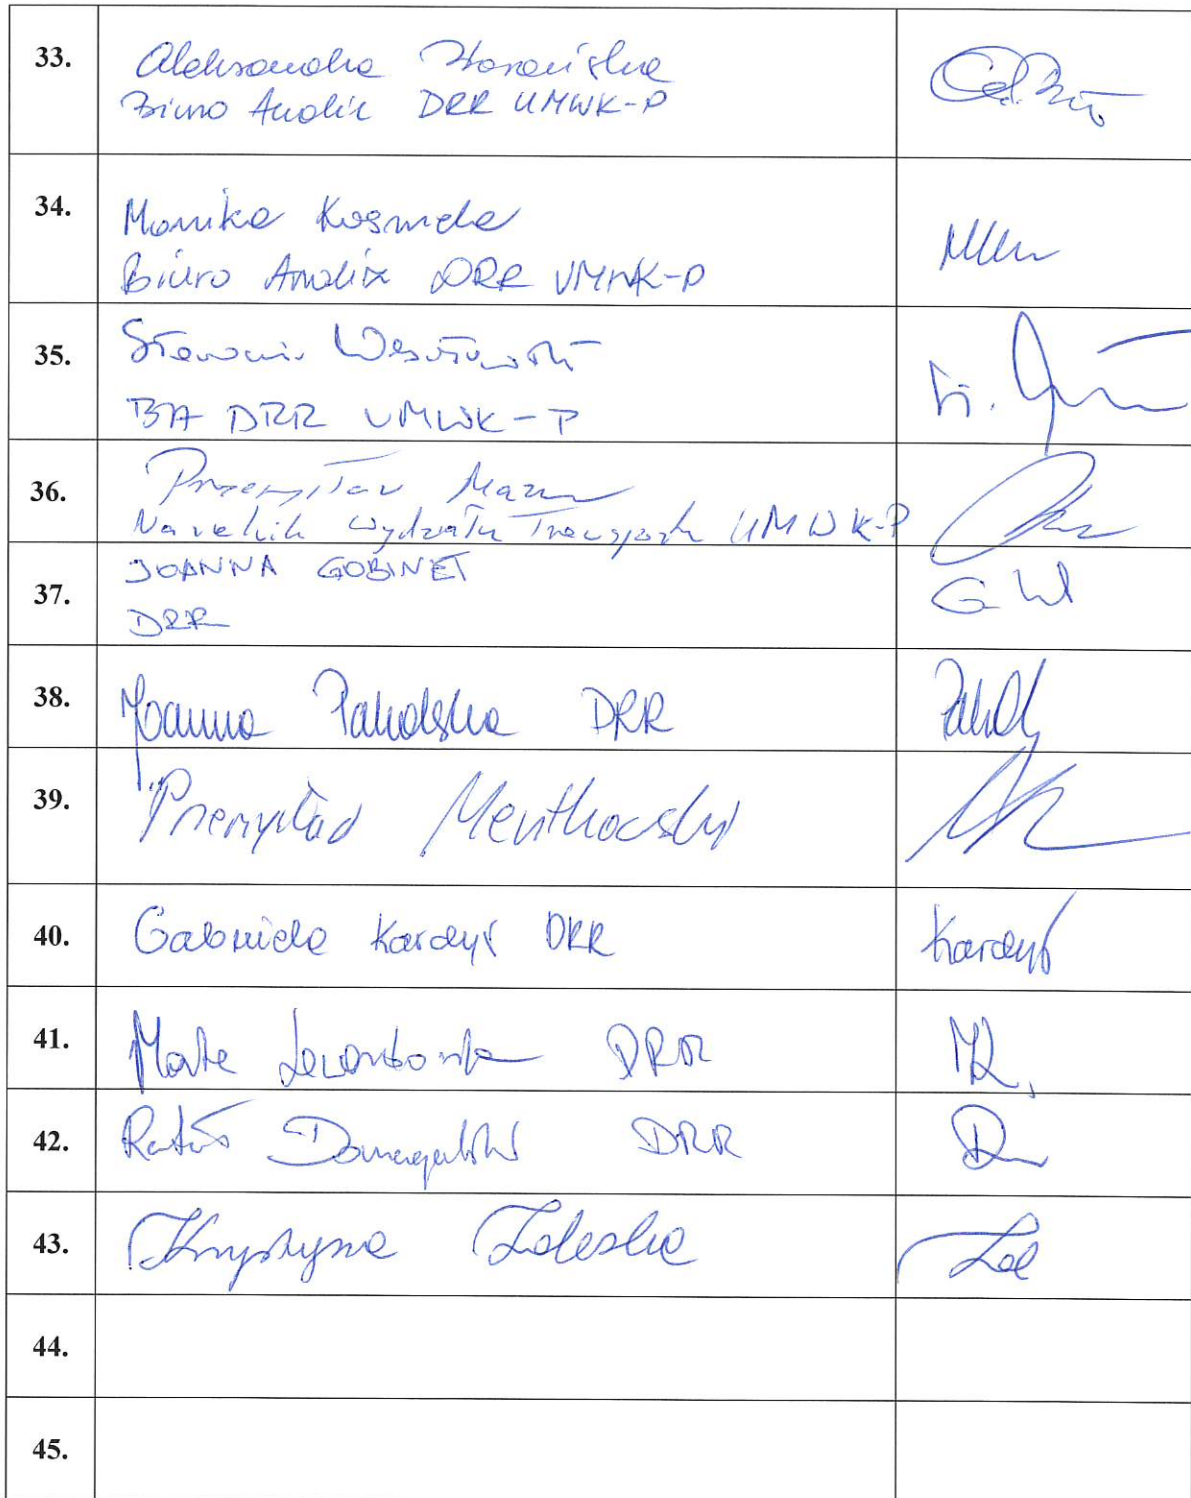 33.
Aleksandra
Biuro Analiz DRR UMWK-P
34.
Monika Kosmela
Biuro Analiz DRR UMWK-P
35.
BA DRR UMWK-P
36.
Przemysław Mazur
Naczelnik Wydziału Transportu UMWK-P
37.
JOANNA GOBINET
DRR
38.
Joanna Pakolska DRR
39.
Przemysław Mentkowski
40.
Gabriela Kardyś DRR Kardyś
41.
Marta Lewandowska DRR
42.
Rafał Domagalski DRR
43.
Krystyna Zaleska Zal
44.
45.